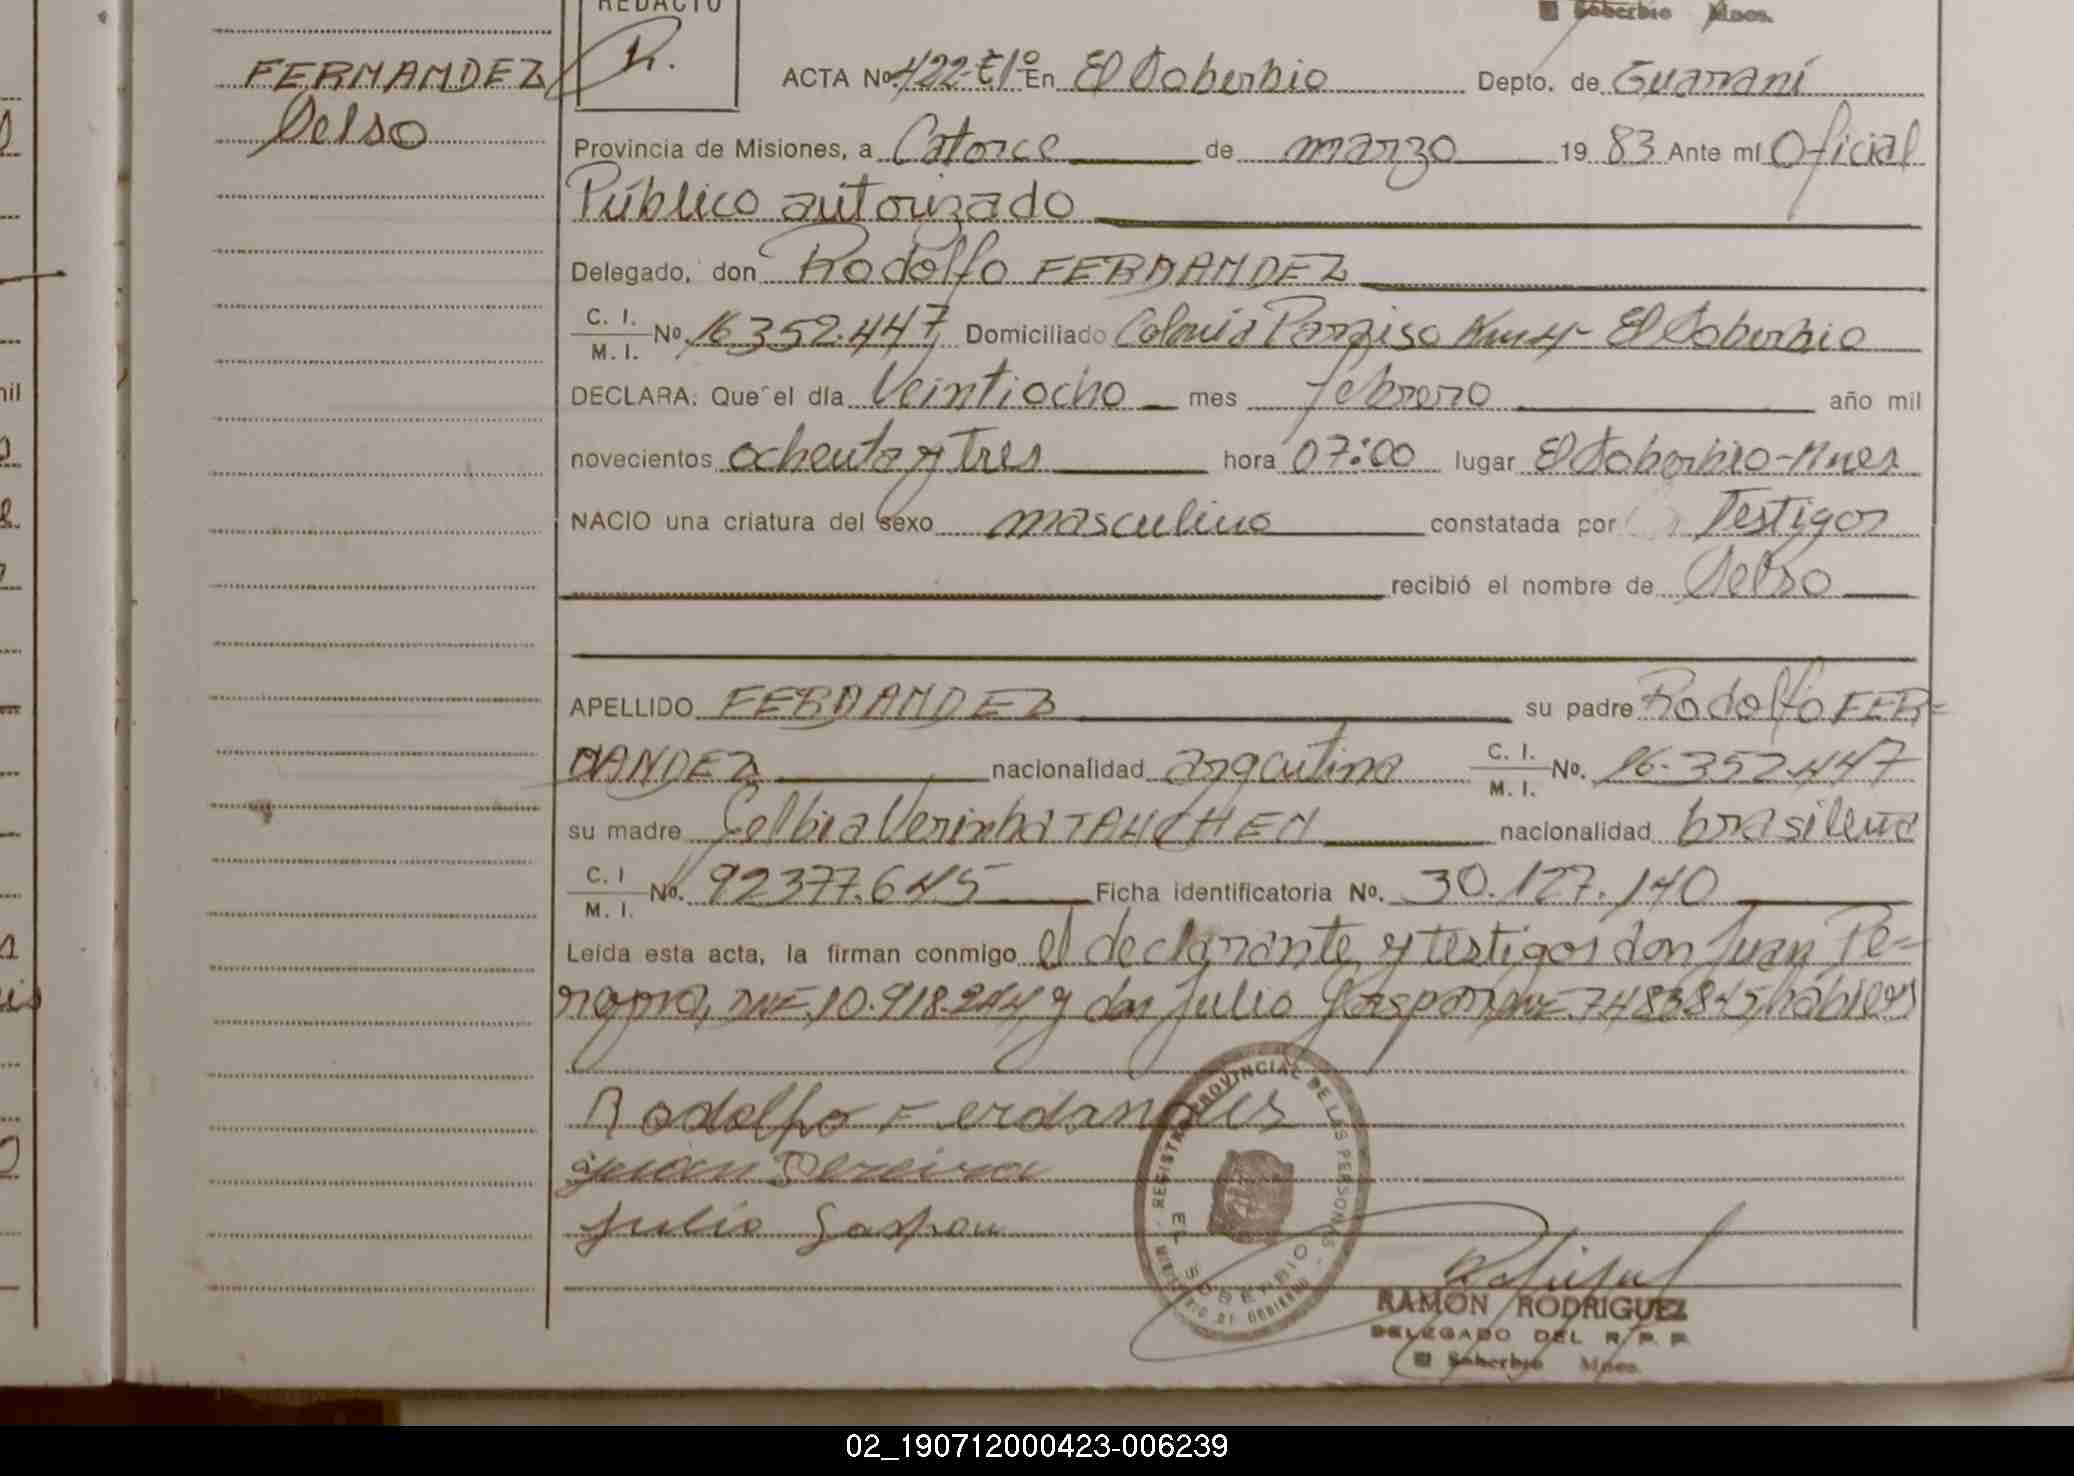 REDACTO
R.
El Soberbio Mnes.
FERNANDEZ
Delso
ACTA Nº 422-Tº1º En El Soberbio Depto. de Guaraní
Provincia de Misiones, a Catorce de marzo 19 83 Ante mí Oficial
Público autorizado
Delegado, don Rodolfo FERNANDEZ
C. I.
M. I. Nº. 16.352.447 Domiciliado Colonia Paraiso Km 4- El Soberbio
DECLARA: Que el día Veintiocho mes febrero año mil
novecientos ochenta y tres hora 07:00 lugar El Soberbio-Mnes
NACIO una criatura del sexo masculino constatada por Testigos
recibió el nombre de Delso
APELLIDO FERNANDEZ su padre Rodolfo FER-
NANDEZ nacionalidad argentina C. I.
M. I. Nº. 16.352.447
su madre nacionalidad brasileña
C. I
M. I. Nº. 92377.645 Ficha identificatoria Nº. 30.127.140
Leída esta acta, la firman conmigo el declarante y testigos don Juan Pe-
10.918.244 y don Julio Gaspar 7483845 hábiles
Rodolfo Fernandes
Juan Pereira
Julio Gaspar
REGISTRO PROVINCIAL DE LAS PERSONAS
EL SOBERBIO
MINISTERIO DE GOBIERNO
RAMON RODRIGUEZ
DELEGADO DEL R. P. P.
El Soberbio Mnes.
02_190712000423-006239